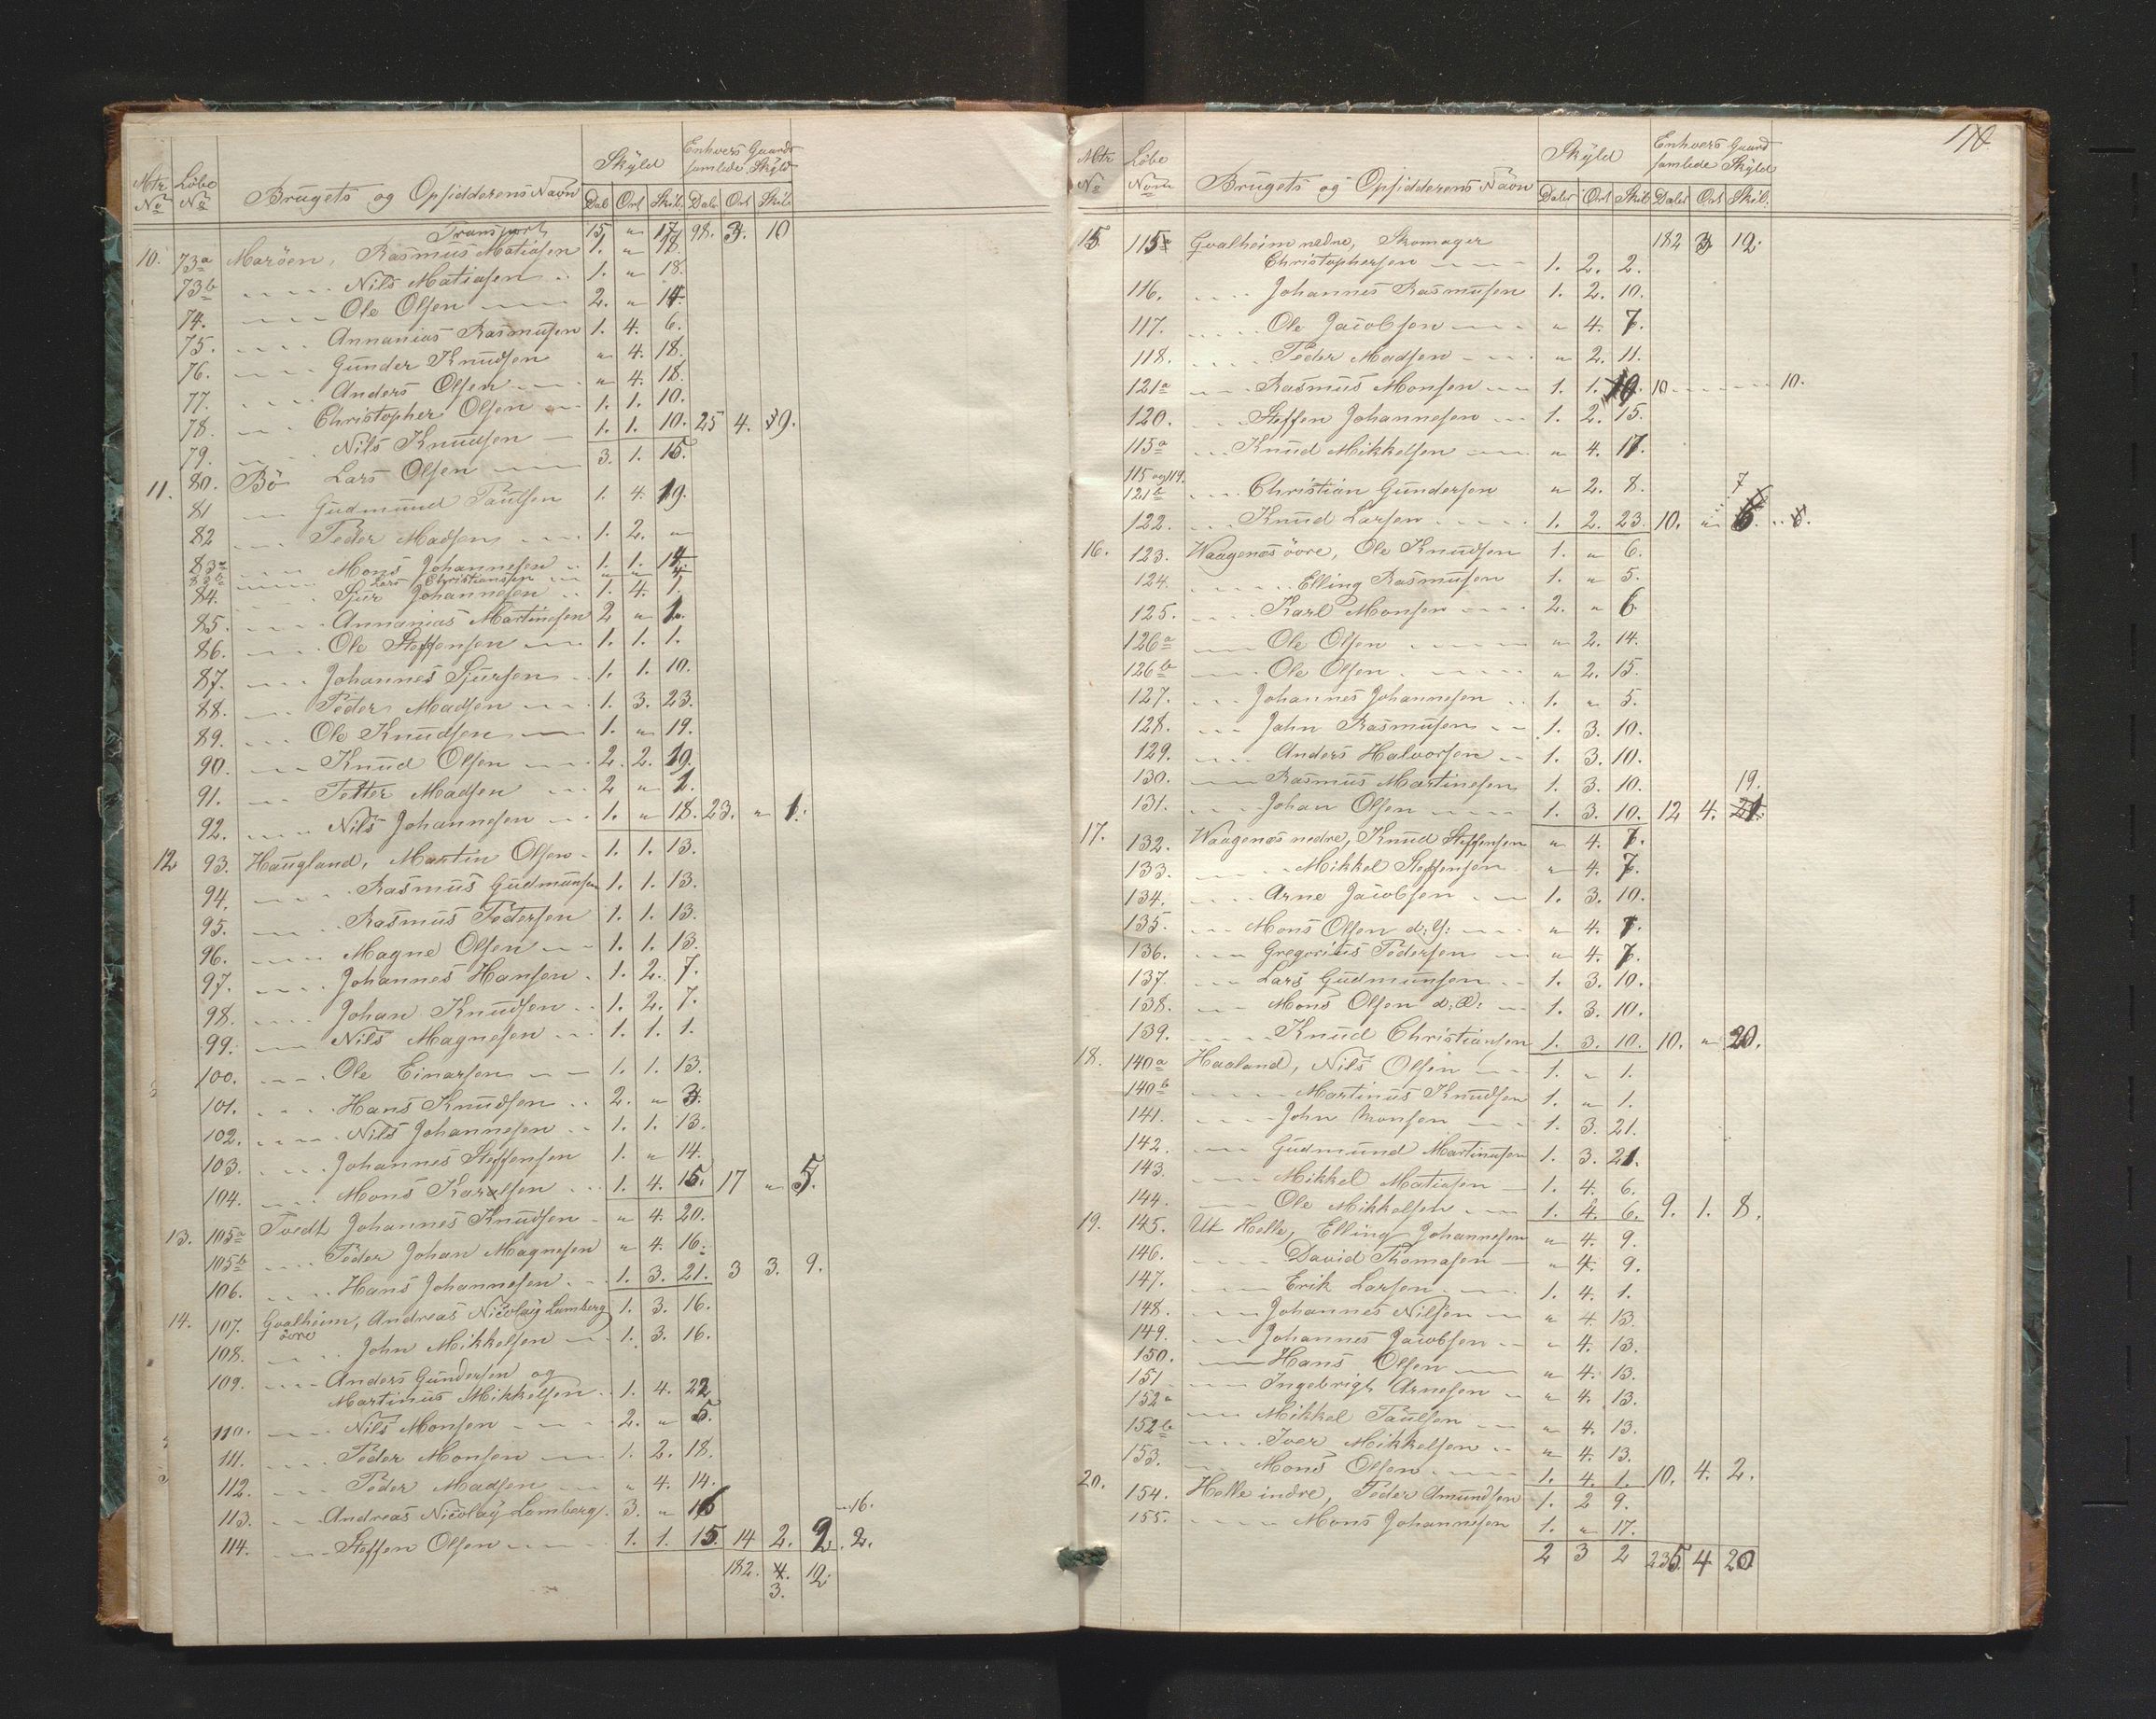 Mtr No Löbe No Brugets og Opsidderens Navn Skyld Enhvers Gaards samlede Skyld
Dal. Ort Skil. Daler Ort Skil.
Transport 15 " 17 98. 3. 10
10. 73a Maröen, Rasmus Matiasen 1. " 18
73b Nils Matiasen 1. " 18.
74. Ole Olsen 2. " 14.
75. Annanias Rasmusen 1. 4. 6.
76. Gunder Knudsen " 4. 18.
77. Anders Olsen " 4. 18.
78. Christopher Olsen 1. 1. 10.
79. Nils Knudsen 1. 1. 10. 25 4. 19.
11. 80. Bö Lars Olsen 3. 1. 15.
81 Gudmund Paulsen 1. 4. 19.
82 Peder Madsen 1. 2. "
83a Mons Johannesen 1. 1. 14.
83b Lars Christiansen " " 4.
84. Sjur Johannesen 1. 4. 1.
85. Annanias Martinesen 2 " 1.
86. Ole Steffensen 1. 1. 1.
87. Johannes Sjursen 1. 1. 10.
88. Peder Madsen 1. 3. 23.
89. Ole Knudsen 1. " 19.
90. Knud Olsen 2. 2. 19.
91. Petter Madsen 2 " 1.
92. Nils Johannesen 1. " 18. 23. " 1.
12 93. Haugland, Martin Olsen 1. 1. 13.
94. Rasmus Gudmunsen 1. 1. 13.
95. Rasmus Pedersen 1. 1. 13.
96. Magne Olsen 1. 1. 13.
97. Johannes Hansen 1. 2. 7.
98. Johan Knudsen 1. 2. 7.
99. Nils Magnesen 1. 1. 1.
100. Ole Einarsen 1. 1. 13.
101. Hans Knudsen 2. " 3.
102. Nils Johannesen 1. 1. 13.
103. Johannes Steffensen 1. " 14.
104. Mons Karelsen 1. 4. 15. 17 " 5.
13. 105a Tvedt Johannes Knudsen " 4. 20.
105b Peder Johan Magnesen " 4. 16.
106. Hans Johannesen 1. 3. 21. 3 3. 9.
14. 107. Qvalheim, Andreas Nicolay Lamberg 1. 3. 16.
övre
108. John Mikkelsen 1. 3. 16.
109. Anders Gundersen og
Martinus Mikkelsen 1. 4. 22
110. Nils Monsen 2. " 5.
111. Peder Monsen 1. 2. 18.
112. Peder Madsen " 4. 14.
113. Andreas Nicolay Lamberg 3. " 16 16.
114. Steffen Olsen 1. 1. 15. 14 2. 2. 2.
182. 4. 12.
3.
Mtr No Löbe Nom Brugets og Opsidderens Navn Skyld Enhvers Gaard samlede Skyld
Daler Ort Skil. Daler Ort Skil.
15 115a Qvalheim nedre, Skomager 182 3 12
Christophersen 1. 2. 2.
116. Johannes Rasmusen 1. 2. 10.
117. Ole Jacobsen " 4. 7.
118. Peder Madsen " 2. 11.
121a Rasmus Monsen 1. 1. 10. 10 10.
120. Steffen Johannesen 1. 2. 15.
115a Knud Mikkelsen " 4. 17.
115 og 119.
121b Christian Gundersen " 2. 8. 7
122. Knud Larsen 1. 2. 23. 10. "
16. 123. Waagenæs övre, Ole Knudsen 1. " 6.
124. Elling Rasmusen 1. " 5.
125. Karl Monsen 2. " 6
126a Ole Olsen " 2. 14.
126b Ole Olsen " 2. 15.
127. Johannes Johannesen 1. " 5.
128. John Rasmusen 1. 3. 10.
129. Anders Halvorsen 1. 3. 10.
130. Rasmus Martinesen 1. 3. 10. 19.
131. Johan Olsen 1. 3. 10. 12 4. 21.
17. 132. Waagenæs nedre, Knud Steffensen " 4. 7.
133. Mikkel Steffensen " 4. 7.
134. Arne Jacobsen 1. 3. 10.
135. Mons Olsen d: Y: " 4. 7.
136. Gregorius Pedersen " 4. 7.
137. Lars Gudmunsen 1. 3. 10.
138. Mons Olsen d: Æ: 1. 3. 10.
139. Knud Christiansen 1. 3. 10. 10. " 20.
18. 140a Haaland, Nils Olsen 1. " 1.
140b Martinus Knudsen 1. " 1.
141. John Monsen 1. 3. 21.
142. Gudmund Martinusen 1. 3. 21.
143. Mikkel Matiasen 1. 4. 6.
144. Ole Mikkelsen 1. 4. 6. 9. 1. 8.
19. 145. Ut Helle, Elling Johannesen " 4. 9.
146. David Thomasen " 4. 9.
147. Erik Larsen 1. 4. 1.
148. Johannes Nilsen " 4. 13.
149. Johannes Jacobsen " 4. 13.
150. Hans Olsen " 4. 13.
151 Ingebrigt Arnesen " 4. 13.
152a Mikkel Paulsen " 4. 13.
152b Iver Mikkelsen " 4. 13.
153. Mons Olsen 1. 4. 1. 10. 4. 2.
20. 154. Helle indre, Peder Amundsen 1. 2 9.
155. Mons Johannesen 1. " 17.
2 3 2 235. 4 20